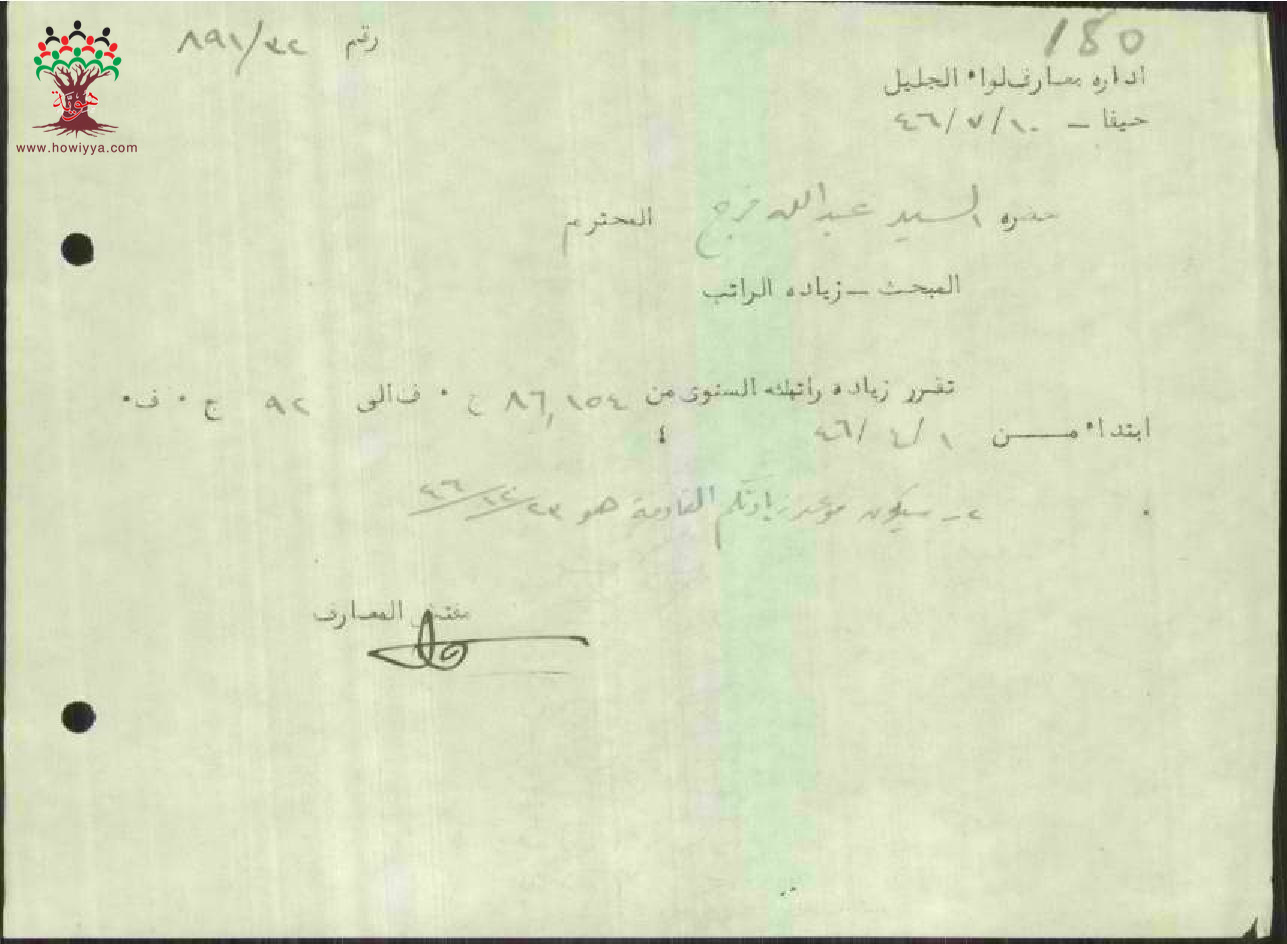 هوية
www.howiyya.com
رقم ٨٩١/٣٢
180
اداره معارف لواء الجليل
حيفا – ٤٦/٧/١٠
حضره السيد عبدالله فرج المحترم
المبحث – زياده الراتب
تقرر زياده راتبك السنوى من ٨٦,١٥٤ ج ٠ ف الى ٩٢ ج ٠ ف٠
ابتداء مـــن ٤٦/٤/١
٢- سيكون موعد زيادتكم القادمة هو
مفتش المعارف